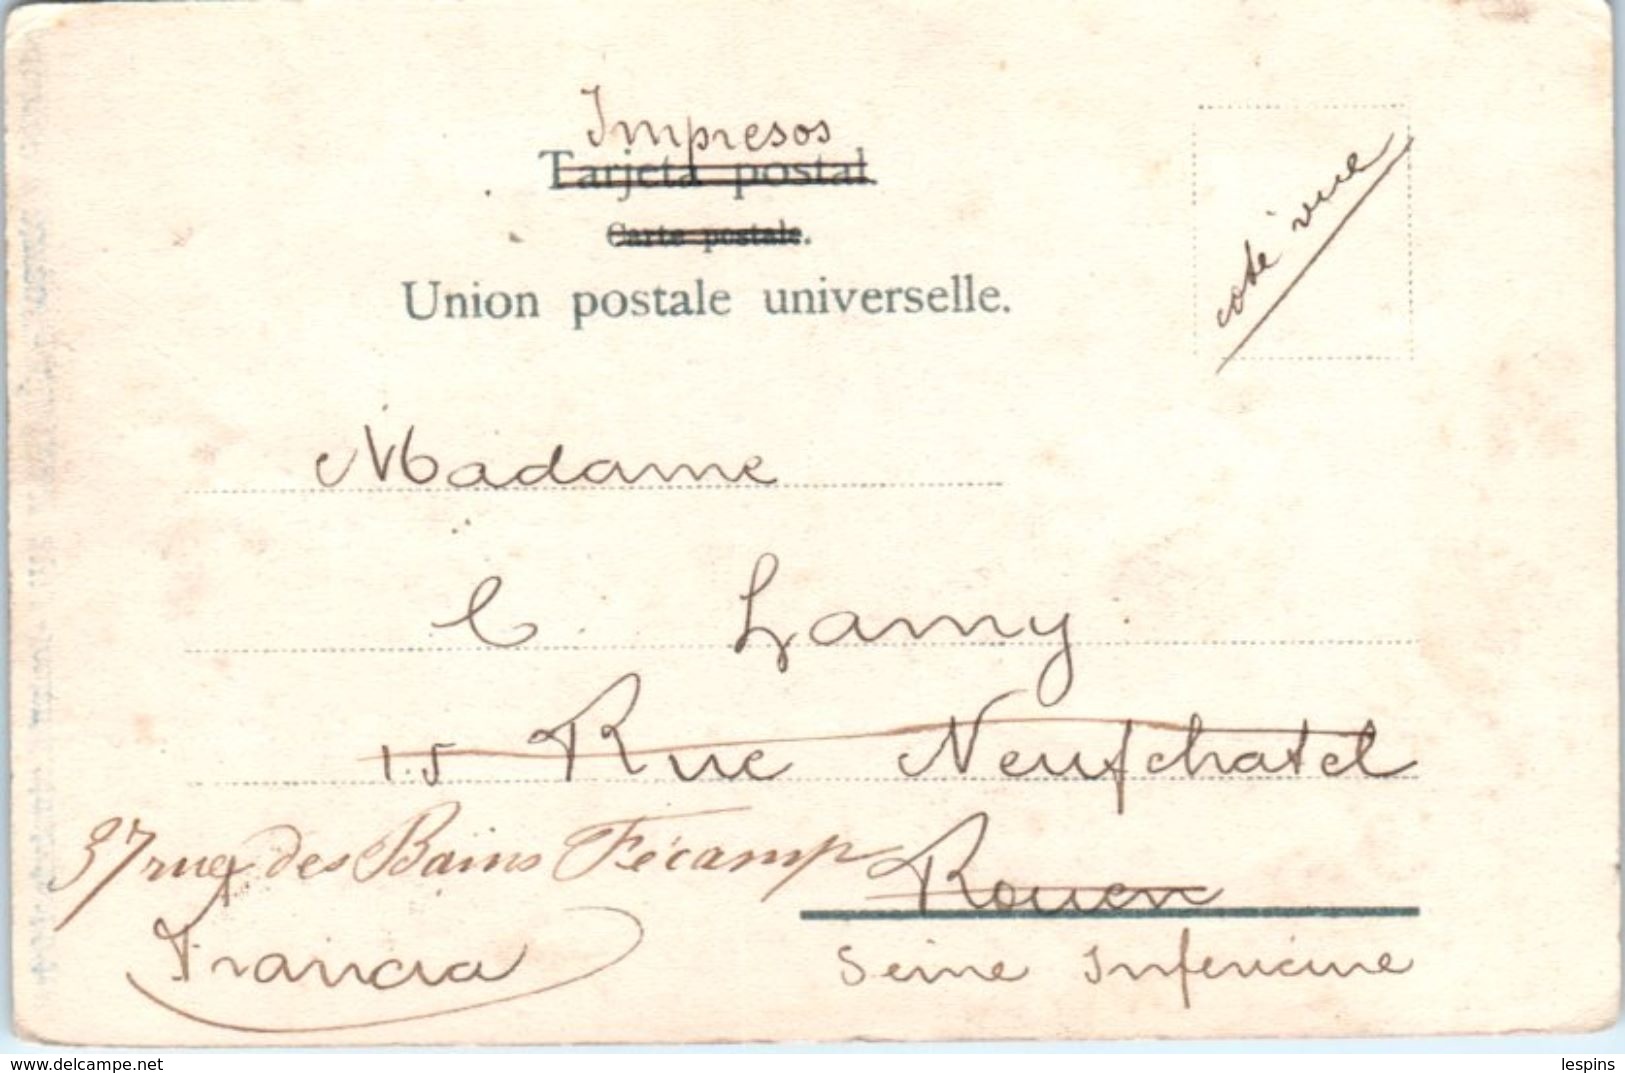 Impresos
Tarjeta postal.
Carte postale.
Union postale universelle.
coté vue
Madame
C. Lamy.
15 Rue Neufchatel
37 rue des Bains Fécamp
Rouen
Francia
Seine Inferieure
www.delcampe.net
lespins